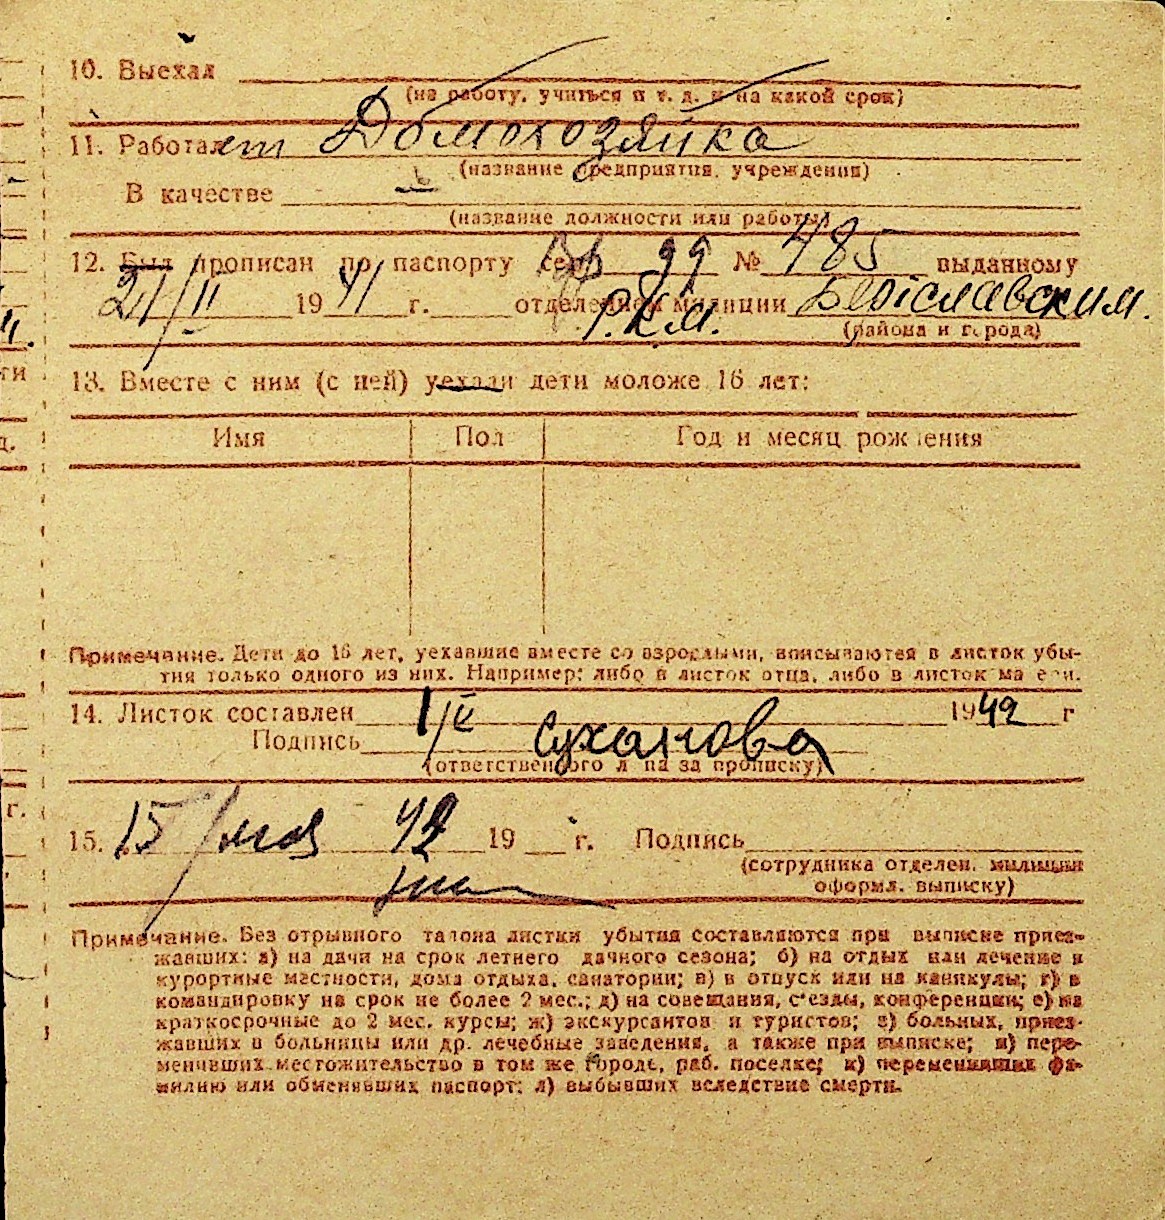 10. Выехал
(на работу, учиться и т. д. и на какой срок)
11. Работает Домохозяйка
(название предприятия, учреждения)
В качестве
(название должности или работы)
12. Был прописан по паспорту сер. 99 № 485 выданному
21/II 1941 г. отделением милиции Беріславским.
Р.К.М.
(района и города)
13. Вместе с ним (с ней) уехали дети моложе 16 лет:
Имя Пол Год и месяц рождения
Примечание. Дети до 16 лет, уехавшие вместе со взрослыми, вписываются в листок убы-
тия только одного из них. Например: либо в листок отца, либо в листок матери.
14. Листок составлен 1/V 1942 г
Подпись Суханова
(ответственного лица за прописку)
15. 15/мая 42 19 г. Подпись
(сотрудника отделен. милиции
оформл. выписку)
Примечание. Без отрывного талона листки убытия составляются при выписке приез-
жавших: а) на дачи на срок летнего дачного сезона; б) на отдых или лечение в
курортные местности, дома отдыха, санатории; в) в отпуск или на каникулы; г) в
командировку на срок не более 2 мес.; д) на совещания, с'езды, конференции; е) на
краткосрочные до 2 мес. курсы; ж) экскурсантов и туристов; з) больных, приез-
жавших в больницы или др. лечебные заведения, а также при выписке; и) пере-
менивших местожительство в том же городе, раб. поселке; к) переменивших фа-
милию или обменявших паспорт; л) выбывших вследствие смерти.